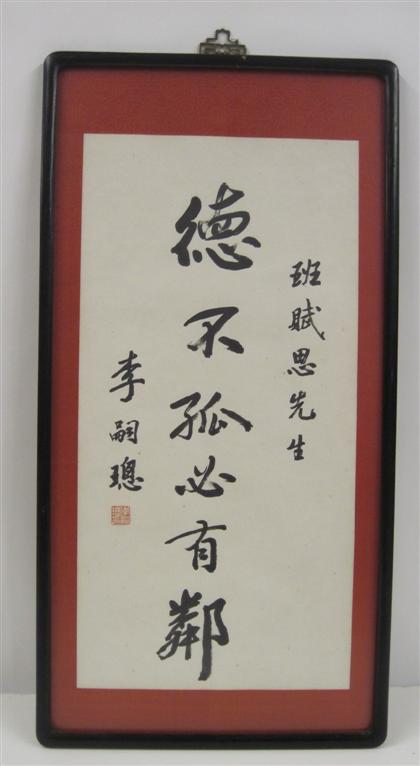 班賦思先生
德不孤必有鄰
李嗣璁